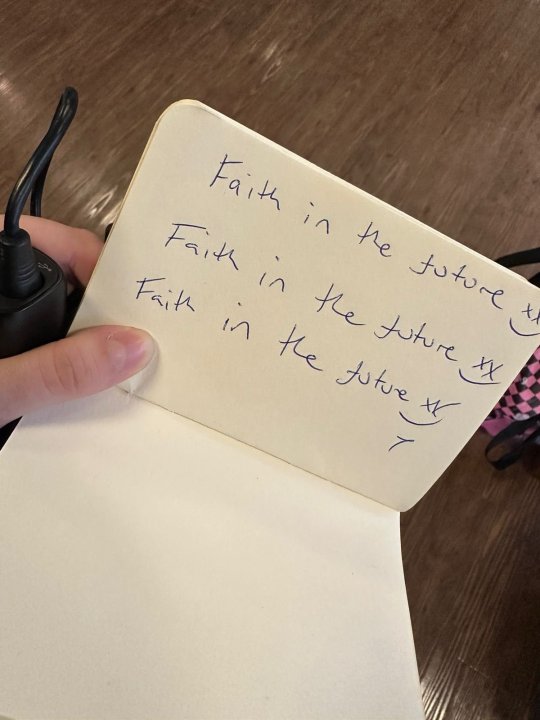 Faith in the future xx
Faith in the future xx
Faith in the future xx
7